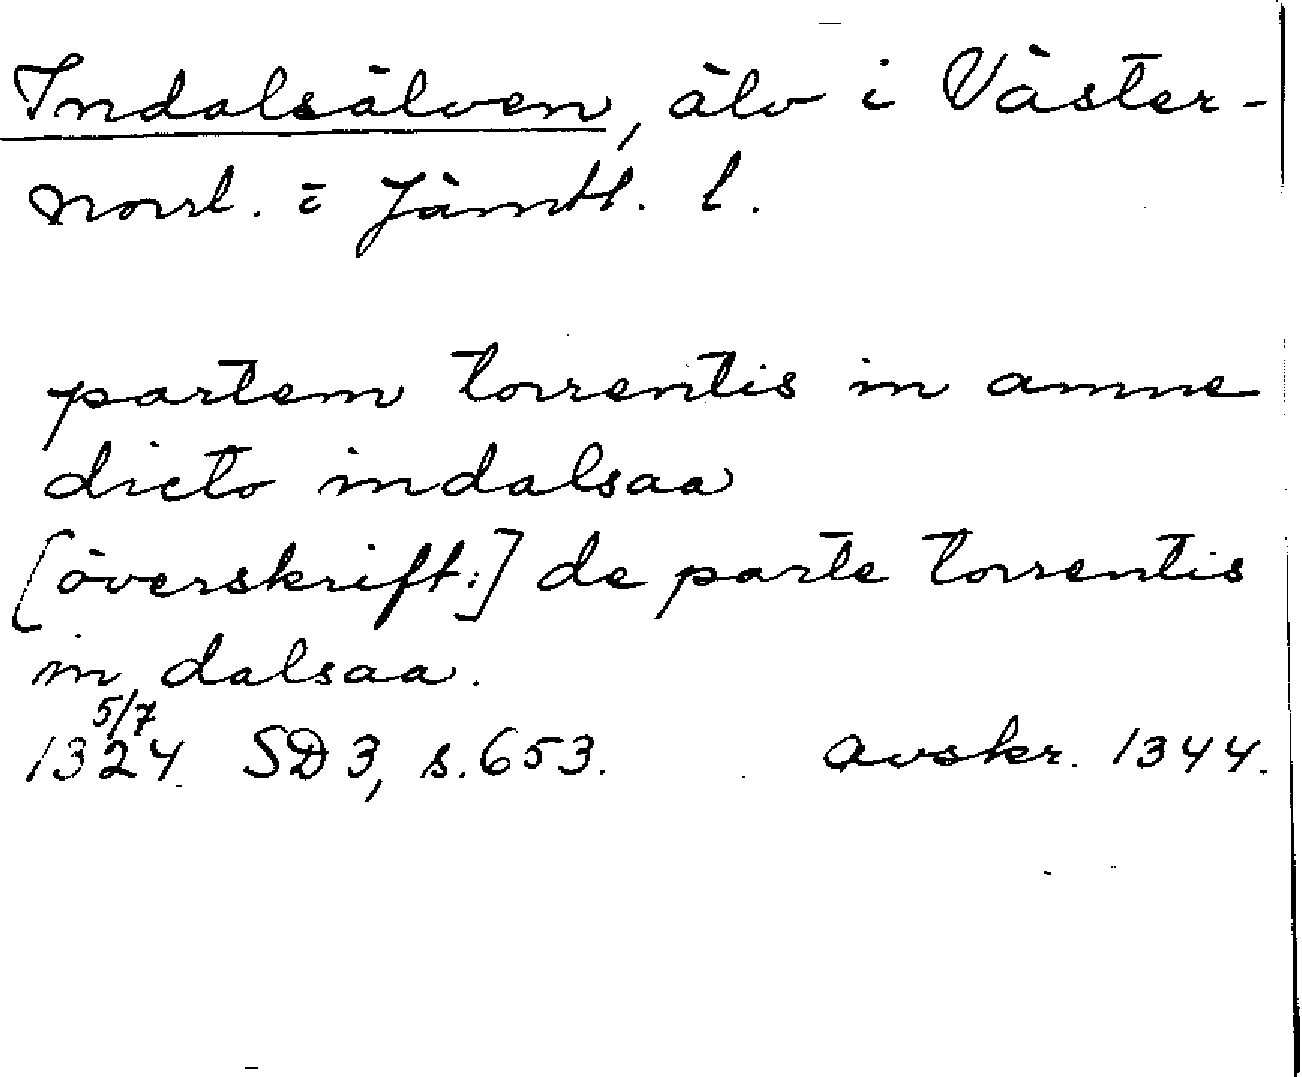 Indalsälven, älv i Väster-
norrl. o. Jämtl. l.
partem torrentis in amne
dicto indalsaa
[överskrift:] de parte torrentis
in dalsaa.
5/7
1324 SD 3, s. 653. avskr. 1344.